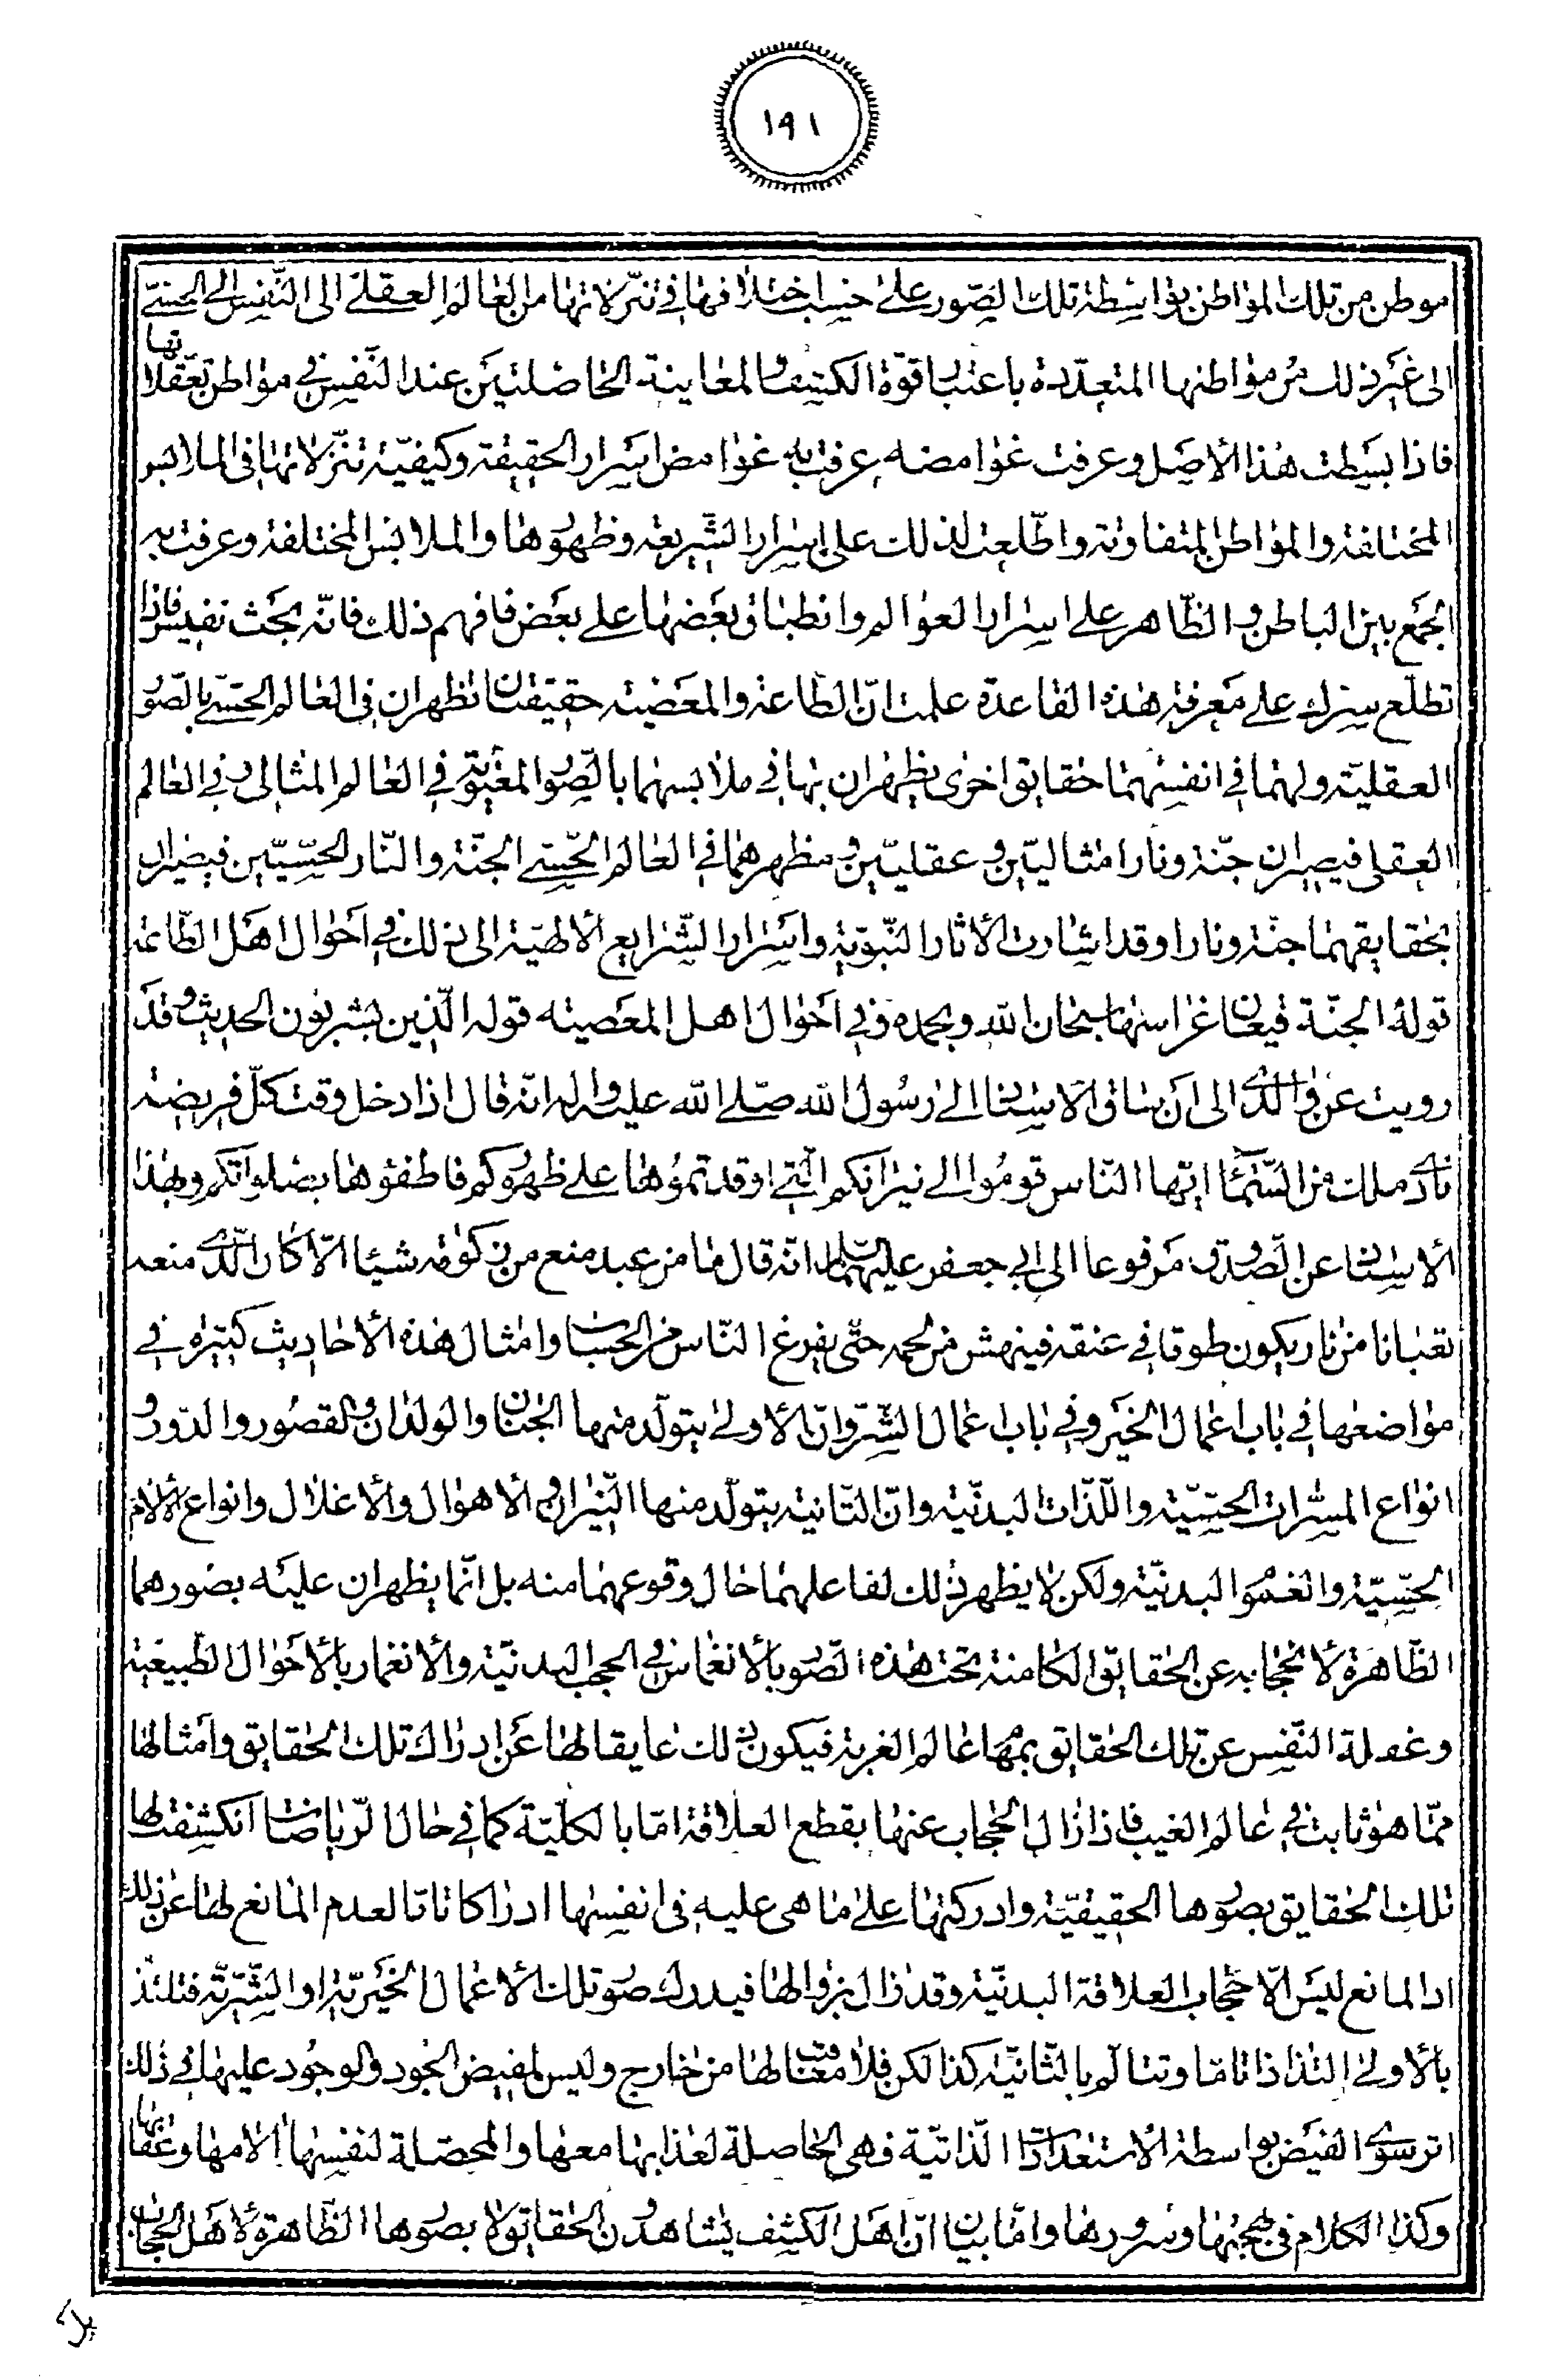 ١٩١
موطن من تلك المواطن بواسطة تلك الصور على حسب اختلافها في تنزلاتها من العالم العقلى الى النفس الى الحسى
الى غير ذلك من مواطنها المتعددة باعتبار قوة الكشف والمعاينة الحاصلتين عند النفس في مواطن تعقلاتها
فاذا بسطت هذا الأصل وعرفت غوامضه عرفت به غوامض اسرار الحقيقة وكيفية تنزلاتها فى الملابس
المختلفة والمواطن المتفاوتة واطلعت لذلك على اسرار الشريعة وظهورها والملابس المختلفة وعرفت به
الجمع بين الباطن والظاهر على اسرار العوالم وانطباق بعضها على بعض فافهم ذلك فانه بحث نفيس فاذا
تطلع سرك على معرفة هذه القاعدة علمت انّ الطاعة والمعصية حقيقتان تظهران فى العالم الحسى بالصور
العقلية ولهما في انفسهما حقايق اخرى يظهران بها في ملابسهما بالصور المعنوية في العالم المثالى وفى العالم
العقلى فيصيران جنّة ونارا مثاليّين وعقليّين ومظهرهما في العالم الحسّى الجنّة والنّار الحسّيّين فيصيران
بحقايقهما جنّة ونارا وقد اشارت الأثار النّبويّة واسرار الشّرايع الألهيّة الى ذلك في احوال اهل الطّاعة
قوله الجنّة قيعان غراسها سبحان الله وبحمده وفي احوال اهل المعصية قوله الّذين يشربون الحديث وقد
رويت عن والدى الى ان ساق الاسناد الى رسول الله صلى الله عليه واله انّه قال اذا دخل وقت كلّ فريضة
نادى ملك من السّماء ايّها النّاس قوموا الى نيرانكم الّتى اوقدتموها على ظهوركم فاطفؤها بصلوتكم وبهذا
الأسناد عن الصّدوق مرفوعا الى ابى جعفر عليه السلام انّه قال ما من عبد منع من زكوته شيئا الّا كان الّذى منعه
ثعبانا من نار يكون طوقا في عنقه فينهش من لحمه حتّى يفرغ النّاس من الحساب وامثال هذه الأحاديث كثيرة في
مواضعها في باب اعمال الخير وفي باب اعمال الشرّ وانّ الأولى يتولّد منها الجنان والولدان والقصور والدّور و
انواع المسرّات الحسّيّة واللّذات البدنيّة وانّ الثّانية يتولّد منها النّيران والأهوال والأغلال وانواع الألام
الحسّيّة والغموم البدنيّة ولكن لا يظهر ذلك لفاعلهما حال وقوعهما منه بل انّما يظهران عليه بصورهما
الظّاهرة لأحتجابه عن الحقايق الكامنة تحت هذه الصّور بالأنغماس في الحجب البدنيّة والأنغمار بالأحوال الطّبيعيّة
وغفلة النّفس عن تلك الحقايق بمهاعالم الغربة فيكون ذلك عايقا لها عن ادراك تلك الحقايق وامثالها
ممّا هو ثابت في عالم الغيب فاذا زال الحجاب عنها بقطع العلاقة امّا بالكليّة كما في حال الرّياضات انكشفت لها
تلك الحقايق بصورها الحقيقيّة وادركتها على ما هى عليه فى انفسها ادراكا تامّا لعدم المانع لها عن ذلك
اذ المانع ليس الّا حجاب العلاقة البدنيّة وقد زال بزوالها فيدرك صور تلك الأعمال الخيريّة او الشّرّيّة فتلتذّ
بالأولى التذاذا تامّا وتتألم بالثّانية كذلك فلا معاقب لها من خارج وليس لمفيض الجود والوجود عليها في ذلك
اثر سوى الفيض بواسطة الأستعدادات الذّاتيّة فهى الحاصلة لعذابها معها والمحصّلة لنفسها الامها وعقابها
وكذا الكلام فى بهجتها وسرورها وامّا بيان انّ اهل الكشف يشاهدون الحقايق لا بصورها الظّاهرة لأهل الحجاب
بل